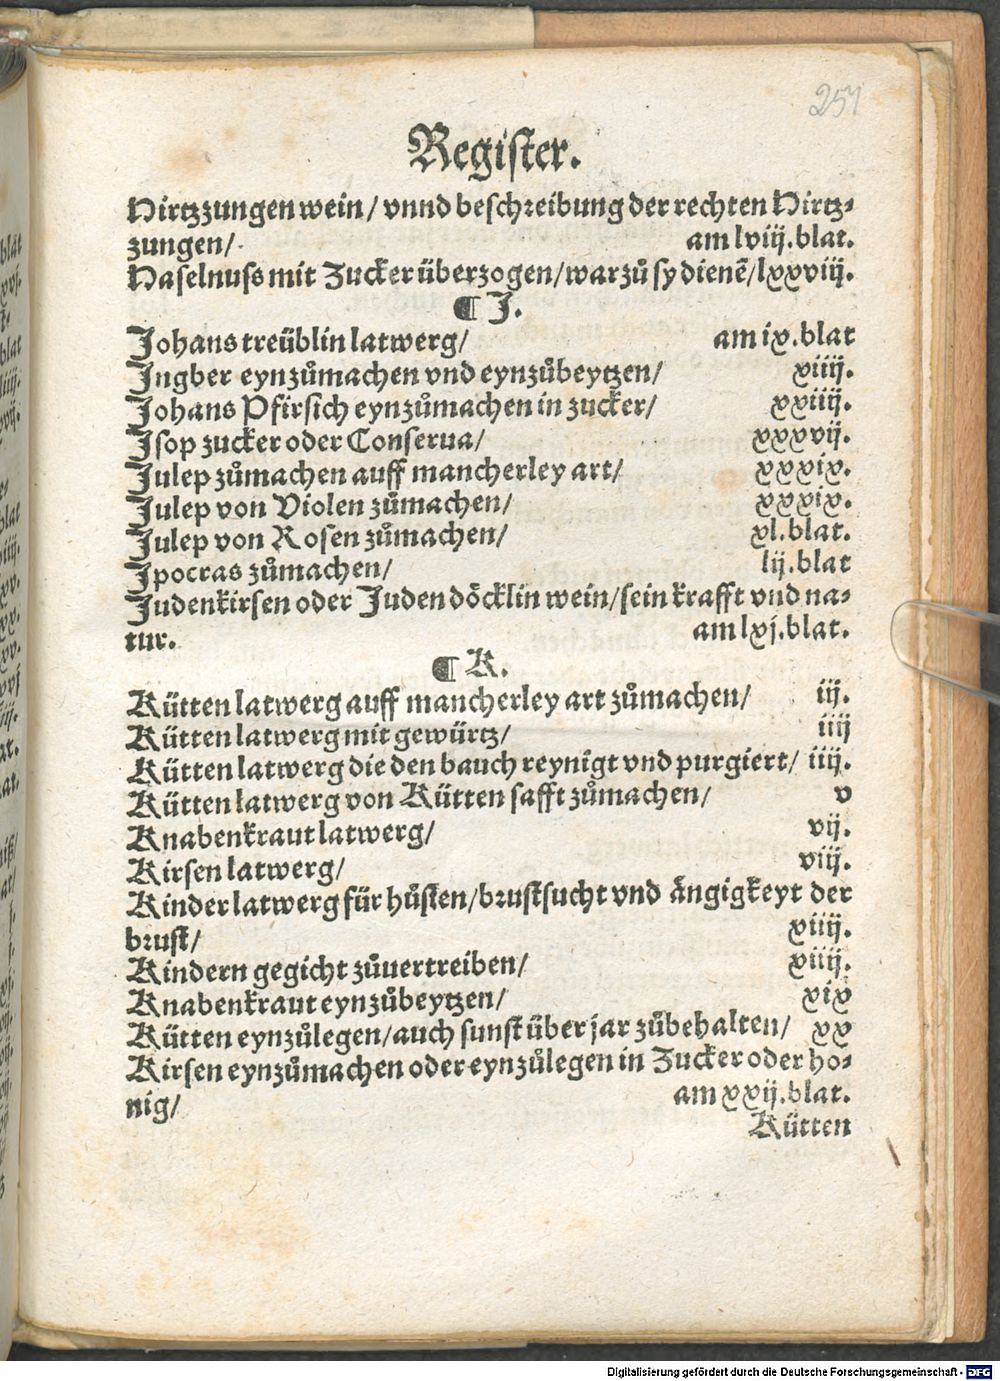 251
Register.
Hirtzzungen wein / vnnd beschreibung der rechten Hirtz-
zungen /. am lviij.blat.
Haselnuss mit Zucker überzogen / warzů sy dienẽ / lxxviij.
¶ J.
Johans treüblin latwerg / am ix.blat
Jngber eynzůmachen vnd eynzůbeytzen / xiiij.
Johans Pfirsich eynzůmachen in zucker / xxiiij.
Jsop zucker oder Conserua / xxxvij.
Julep zůmachen auff mancherley art / xxxix.
Julep von Violen zůmachen / xxxix.
Julep von Rosen zůmachen / xl.blat.
Jpocras zůmachen / lij.blat
Judenkirsen oder Juden döcklin wein / sein krafft vnd na-
tur. am lxj.blat.
¶ K.
Kütten latwerg auff mancherley art zůmachen / iij.
Kütten latwerg mit gewürtz / iiij
Kütten latwerg die den bauch reynigt vnd purgiert / iiij.
Kütten latwerg von Kütten safft zůmachen / v
Knabenkraut latwerg / vij.
Kirsen latwerg / viij.
Kinder latwerg für hůsten / brustsucht vnd ängigkeyt der
brust / xiiij.
Kindern gegicht zůuertreiben / xiiij.
Knabenkraut eynzůbeytzen / xix
Kütten eynzůlegen / auch sunst über jar zůbehalten / xx
Kirsen eynzůmachen oder eynzůlegen in Zucker oder ho-
nig / am xxij.blat.
Kütten
Digitalisierung gefördert durch die Deutsche Forschungsgemeinschaft - DFG